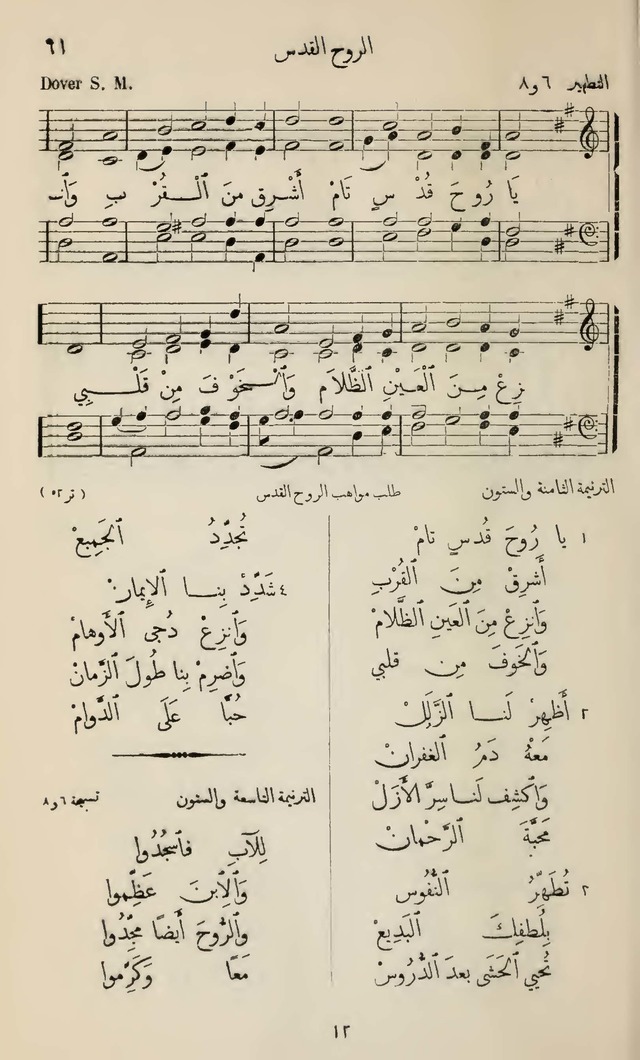 الروح القدس ٦١
التطهير ٦ و٨ Dover S. M.
يَا رُوحَ قُدْ سٍ تَامْ أَشْرِقْ مِنَ ٱلْـقُرْ بِ وَٱنـ
زِعْ مِـنَ ٱلْعَيْنِ ٱلظَّلَام وَٱلْـخَوْ فَ مِنْ قَلْـبِي
الترنيمة الثامنة والستون طلب مواهب الروح القدس ( تر٥٢ )
١ يا رُوحَ قُدسٍ تامْ
أَشرِقْ مِنَ ٱلقُربِ
وَٱنزِعْ مِنَ ٱلعَينِ ٱلظَّلامْ
وَٱلخَوفَ مِن قلبي
٢ أَظهِرْ لَنـا ٱلزَّلَلْ
مَعْهُ دَمُ ٱلغفرانْ
وَٱكشِف لَنـا سِرَّ ٱلأَزَلْ
مَحبَّةَ ٱلرَّحْمانْ
٢ تُطَهِّرُ ٱلنُّفُوس
بِلُطفِكَ ٱلبَدِيعْ
تُحيي ٱلحَشَى بعدَ ٱلدُّرُوسْ
تُجَدِّدُ ٱلجَمِيعْ
٤ شَدِّدْ بِنـا ٱلإِيمانْ
وَٱنزِعْ دُجى ٱلأَوهامْ
وَٱضرِمْ بِنا طُولَ ٱلزَّمانْ
حُبًّا عَلَى ٱلدَّوامْ
الترنيمة التاسعة والستون تسبحة ٦ و٨
لِلآبِ فٱسجُدُوا
وَٱلِٱبنَ عَظِّموا
وٱلرُّوحَ أَيضًا مجِّدُوا
مَعًا وَكَرِّموا
١٢